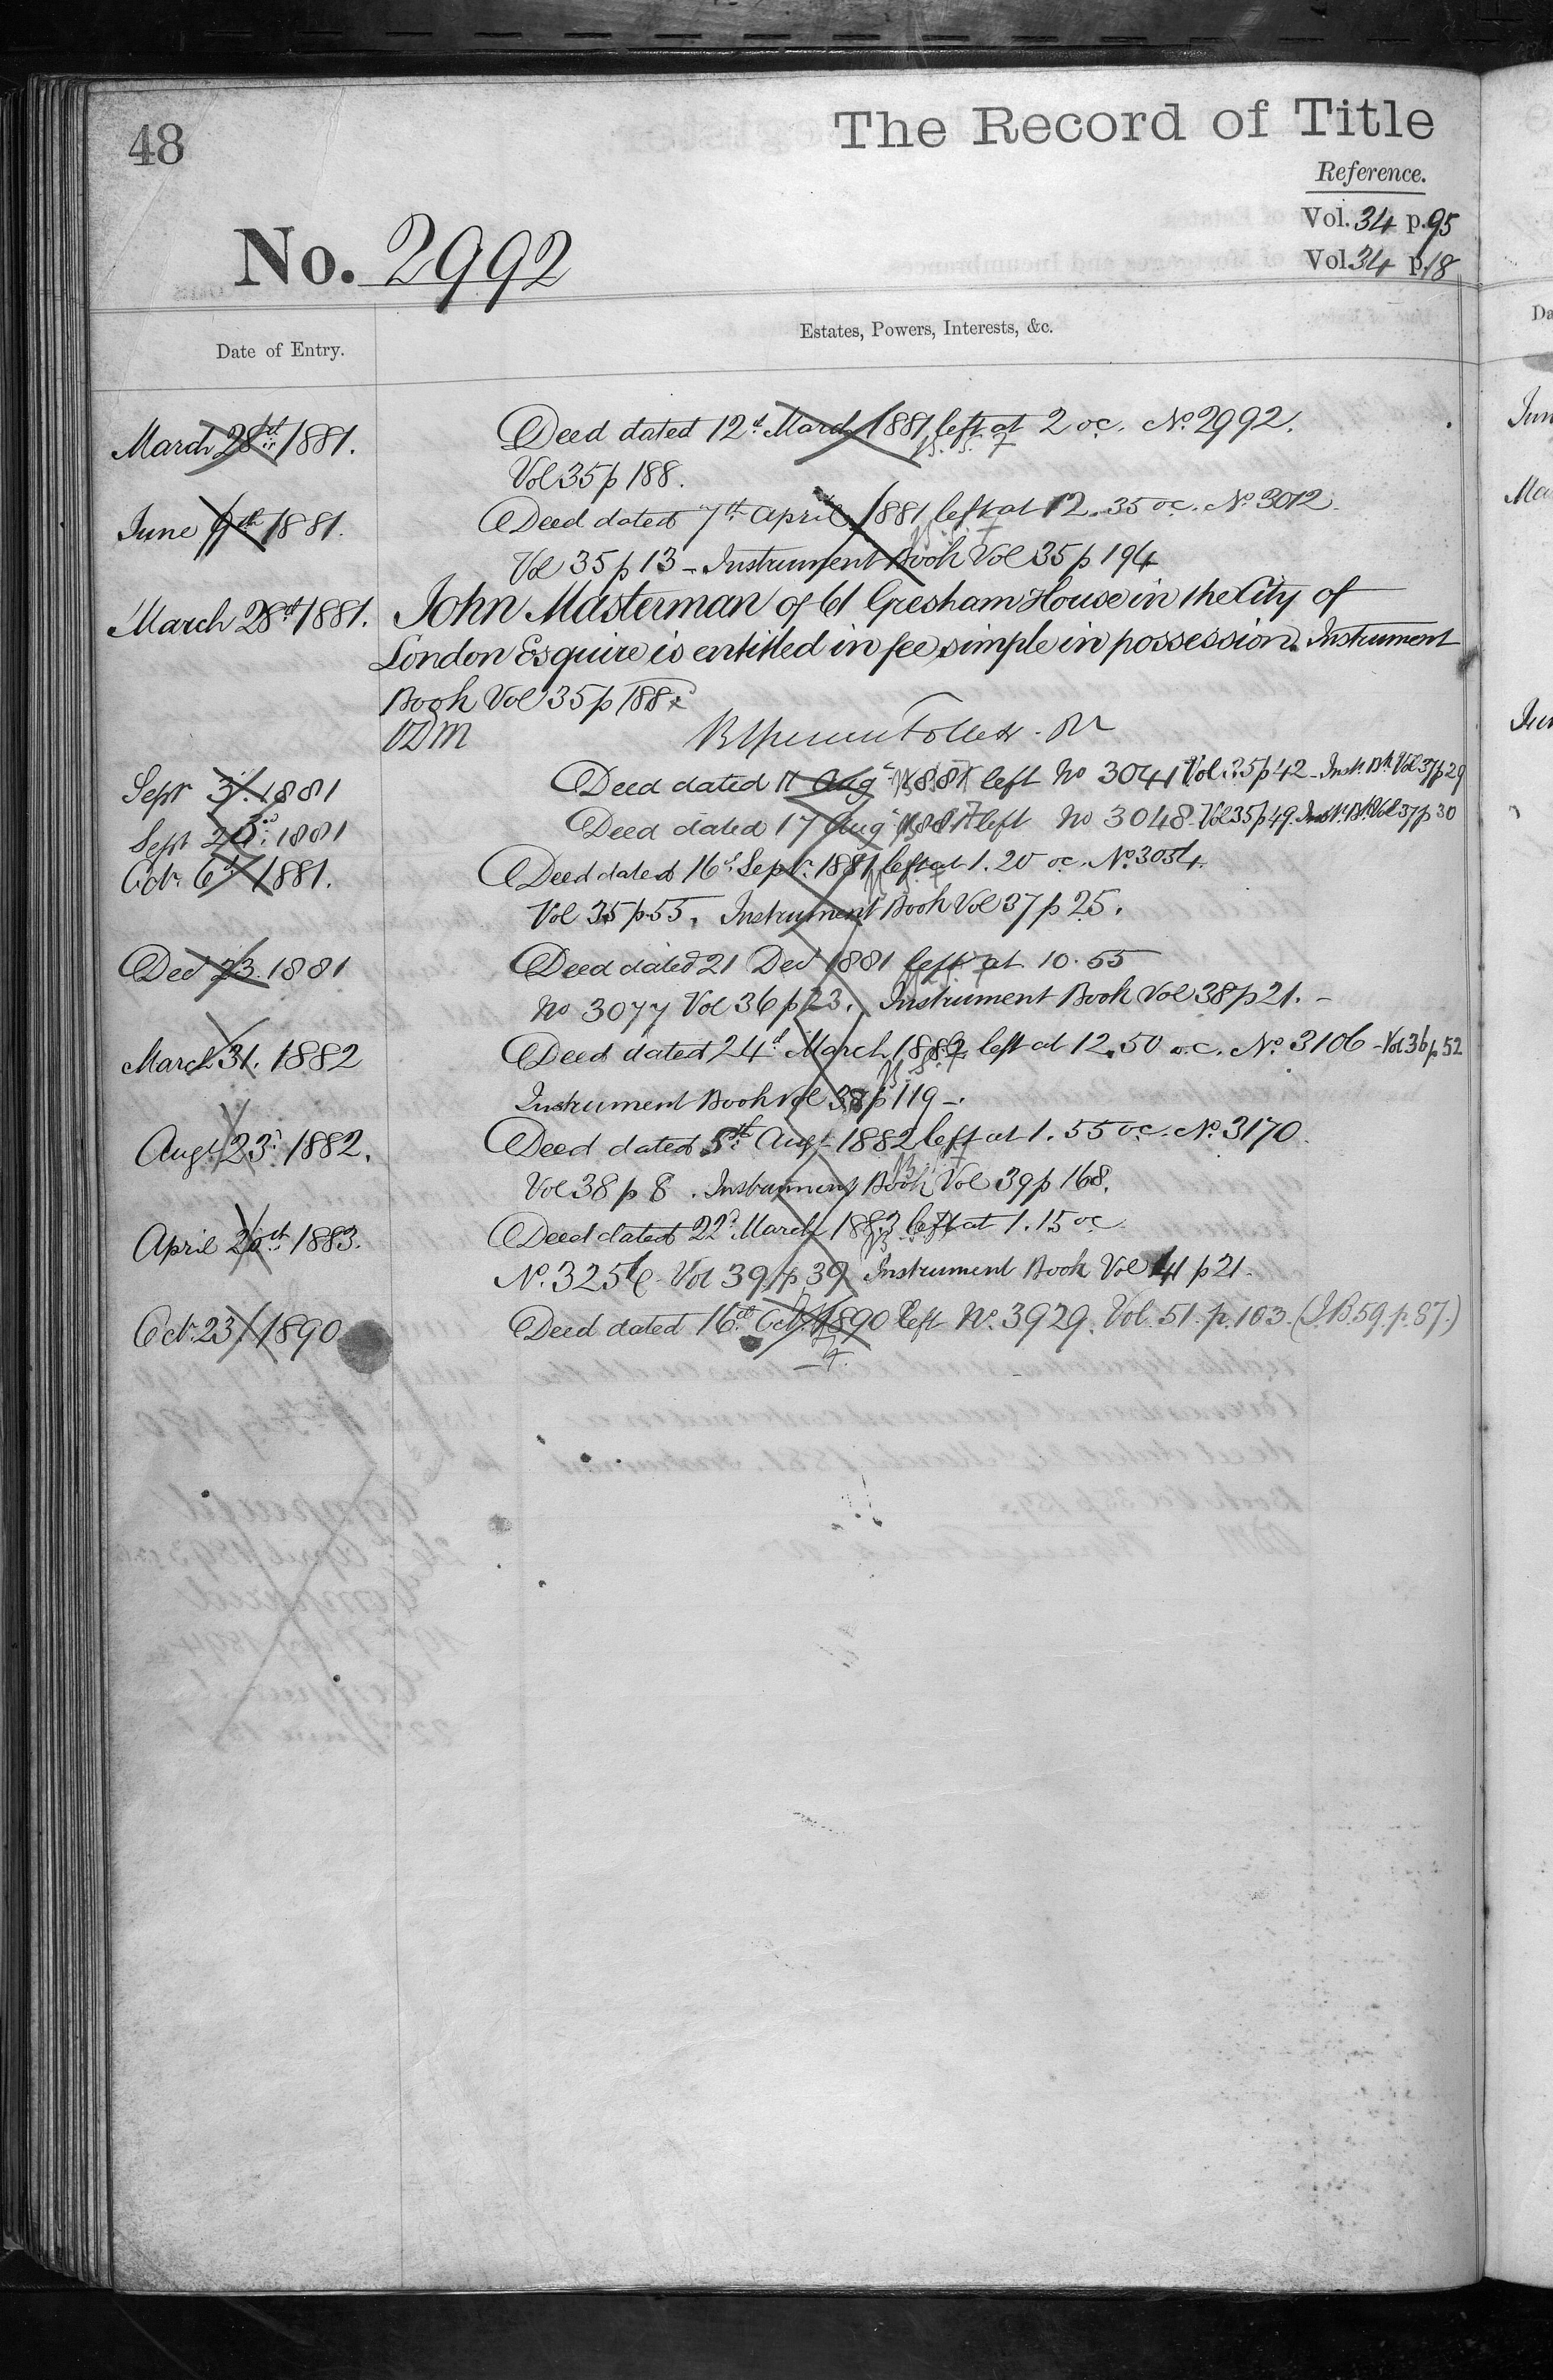 48
The Record of Title
Reference.
Vol. 34 p. 95
Vol. 34 p. 18
No. 2992
Date of Entry.
Estates, Powers, Interests, &c.
March 28th 1881. Deed dated 12th March 1881 left at 2 oc. No. 2992.
Vol 35 p 188.
June 9th 1881. Deed dated 7th April 1881 left at 12.35 oc. No. 3012.
Vol 35 p 13 - Instrument Book Vol 35 p 194
March 28th 1881. John Masterman of 61 Gresham House in the City of
London Esquire is entitled in fee simple in possession. Instrument
Book Vol 35 p 188
Sept 3. 1881 Deed dated 17 Aug 1881 left No 3041 Vol. 35 p 42 - Inst. Bk Vol 37 p 29
Sept 20. 1881 Deed dated 17 Aug 1881 left No 3048 - Vol 35 p 49. Inst. Bk Vol 37 p 30
Oct. 6th 1881. Deed dated 16th Sept. 1881 left at 1.20 oc. No. 3054.
Vol 35 p 55. Instrument Book Vol 37 p 25.
Dec 23. 1881 Deed dated 21 Dec 1881 left at 10.55
No 3077 Vol 36 p 23. Instrument Book Vol 38 p 21. -
March 31. 1882 Deed dated 24th March 1882 left at 12.50 o.c. No. 3106 - Vol 36 p 52
Instrument Book Vol 38 p 119 -.
Augt 23d 1882. Deed dated 5th Augt 1882 left at 1.55 oc. No. 3170.
Vol 38 p 8. Instrument Book Vol 39 p 168.
April 20th 1883. Deed dated 22d March 1883 left at 1.15 oc
No. 3256 - Vol 39 p 39 Instrument Book Vol 41 p 21.
Oct. 23 1890 Deed dated 16th Oct. 1890 left No. 3929. Vol. 51. p. 103. (I.B. 59. p. 87.)